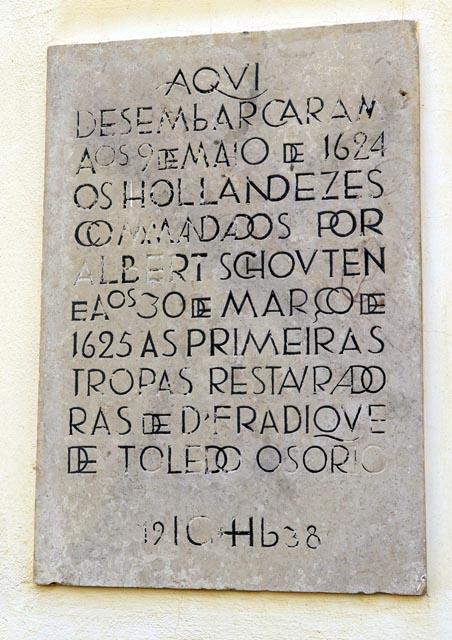 AQVI
DESEMBARCARAM
AOS 9 DE MAIO DE 1624
OS HOLLANDEZES
COMMANDADOS POR
ALBERT SCHOVTEN
E AOS 30 DE MARÇO DE
1625 AS PRIMEIRAS
TROPAS RESTAVRADO
RAS DE D. FRADIQVE
DE TOLEDO OSORIO
19 IGHB 38